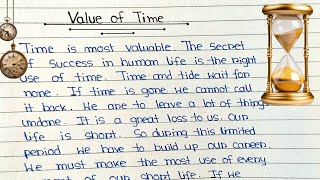 Value of Time
Time is most valuable. The secret
of success in human life is the right
use of time. Time and tide wait for
none. If time is gone we cannot call
it back. We are to leave a lot of things
undone. It is a great loss to us. Our
life is short. So during this limited
period we have to build up our career.
We must make the most use of every
of our short life. If we